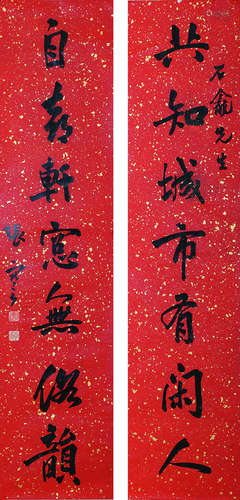 共知城市有闲人
石龕先生
自喜軒窓無俗韻
張